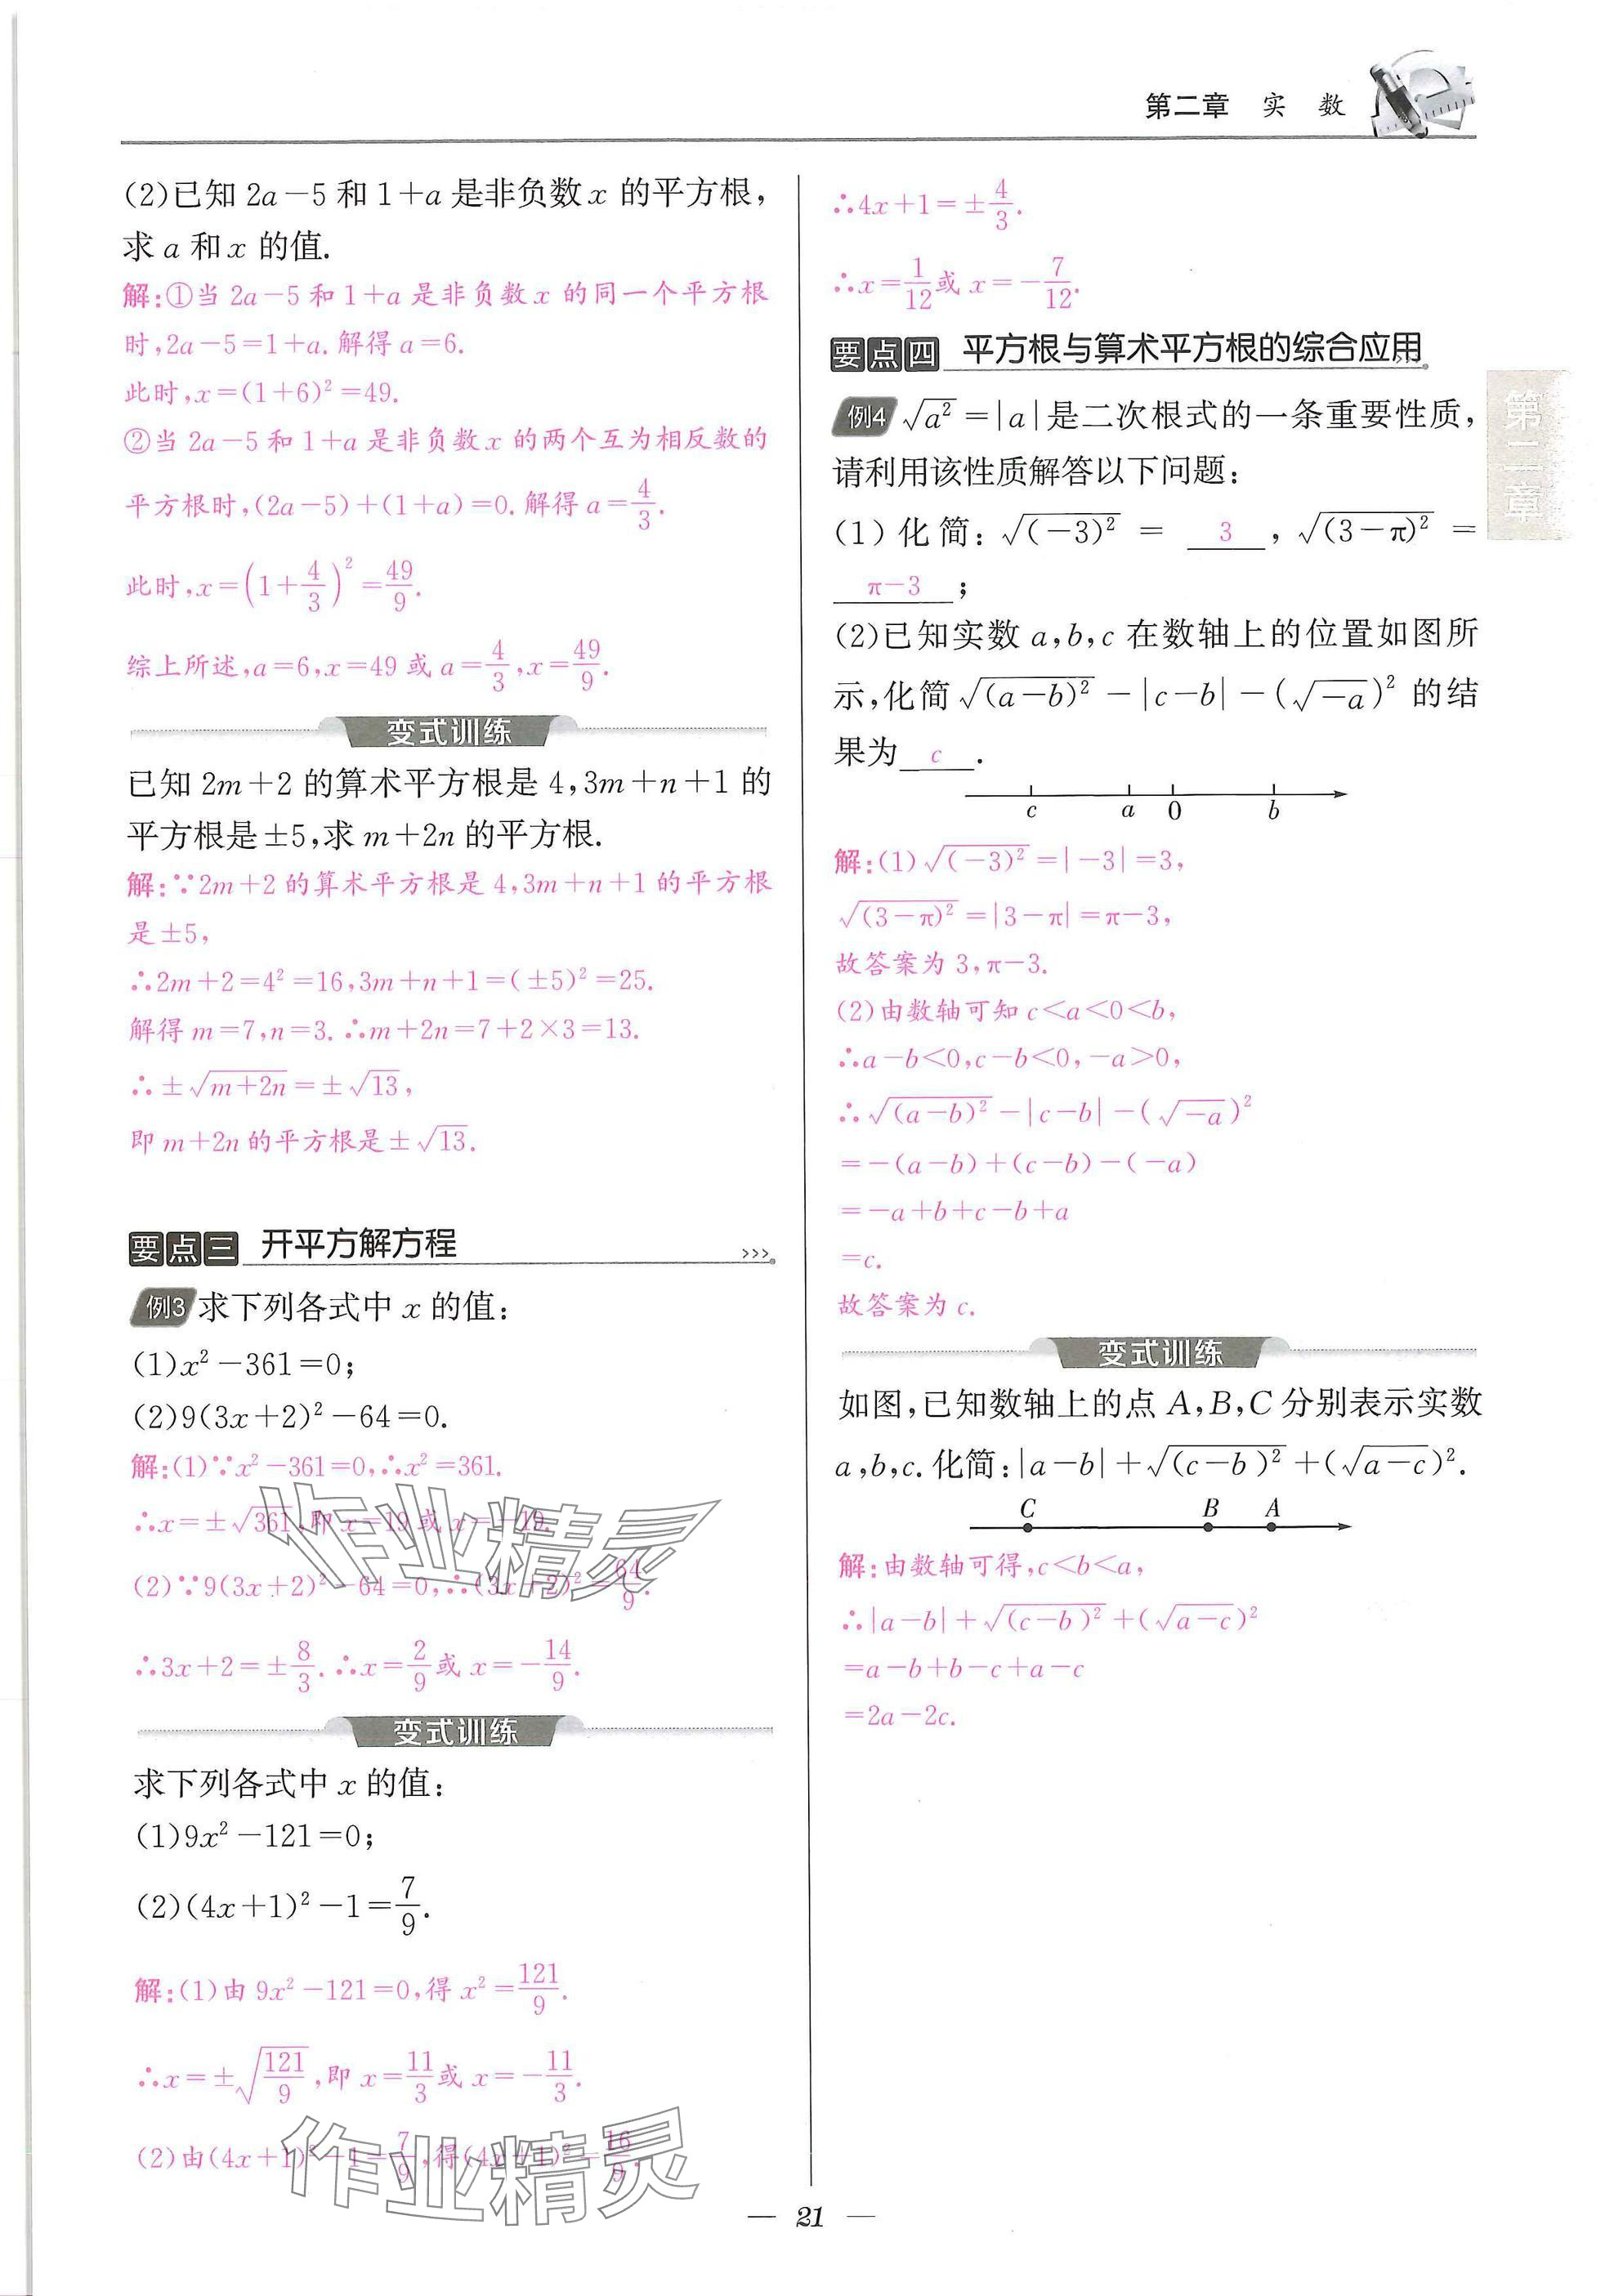 第二章 实 数
(2)已知 2a－5 和 1＋a 是非负数 x 的平方根,
求 a 和 x 的值.
解:①当 2a－5 和 1＋a 是非负数 x 的同一个平方根
时,2a－5＝1＋a. 解得 a＝6.
此时,x＝(1＋6)²＝49.
②当 2a－5 和 1＋a 是非负数 x 的两个互为相反数的
平方根时,(2a－5)＋(1＋a)＝0. 解得 a＝4/3.
此时,x＝(1＋4/3)²＝49/9.
综上所述,a＝6,x＝49 或 a＝4/3,x＝49/9.
变式训练
已知 2m＋2 的算术平方根是 4,3m＋n＋1 的
平方根是±5,求 m＋2n 的平方根.
解:∵2m＋2 的算术平方根是 4,3m＋n＋1 的平方根
是±5,
∴2m＋2＝4²＝16,3m＋n＋1＝(±5)²＝25.
解得 m＝7,n＝3. ∴m＋2n＝7＋2×3＝13.
∴±√(m＋2n)＝±√13,
即 m＋2n 的平方根是±√13.
要点三 开平方解方程 >>>
例3 求下列各式中 x 的值:
(1)x²－361＝0;
(2)9(3x＋2)²－64＝0.
解:(1)∵x²－361＝0,∴x²＝361.
∴x＝±√361,即 x＝19 或 x＝－19.
(2)∵9(3x＋2)²－64＝0,∴(3x＋2)²＝64/9.
∴3x＋2＝±8/3. ∴x＝2/9 或 x＝－14/9.
作业精灵
变式训练
求下列各式中 x 的值:
(1)9x²－121＝0;
(2)(4x＋1)²－1＝7/9.
解:(1)由 9x²－121＝0,得 x²＝121/9.
∴x＝±√(121/9),即 x＝11/3 或 x＝－11/3.
(2)由(4x＋1)²－1＝7/9,得(4x＋1)²＝16/9.
作业精灵
∴4x＋1＝±4/3.
∴x＝1/12 或 x＝－7/12.
要点四 平方根与算术平方根的综合应用
例4 √(a²)＝|a|是二次根式的一条重要性质,
请利用该性质解答以下问题:
(1) 化 简: √((－3)²) ＝ 3 , √((3－π)²) ＝
π－3 ;
(2)已知实数 a,b,c 在数轴上的位置如图所
示,化简√((a－b)²)－|c－b|－(√(－a))² 的结
果为 c .
c a 0 b
解:(1)√((－3)²)＝|－3|＝3,
√((3－π)²)＝|3－π|＝π－3,
故答案为 3,π－3.
(2)由数轴可知 c<a<0<b,
∴a－b<0,c－b<0,－a>0,
∴√((a－b)²)－|c－b|－(√(－a))²
＝－(a－b)＋(c－b)－(－a)
＝－a＋b＋c－b＋a
＝c.
故答案为 c.
变式训练
如图,已知数轴上的点 A,B,C 分别表示实数
a,b,c. 化简:|a－b|＋√((c－b)²)＋(√(a－c))².
C B A
解:由数轴可得,c<b<a,
∴|a－b|＋√((c－b)²)＋(√(a－c))²
＝a－b＋b－c＋a－c
＝2a－2c.
第二章
— 21 —